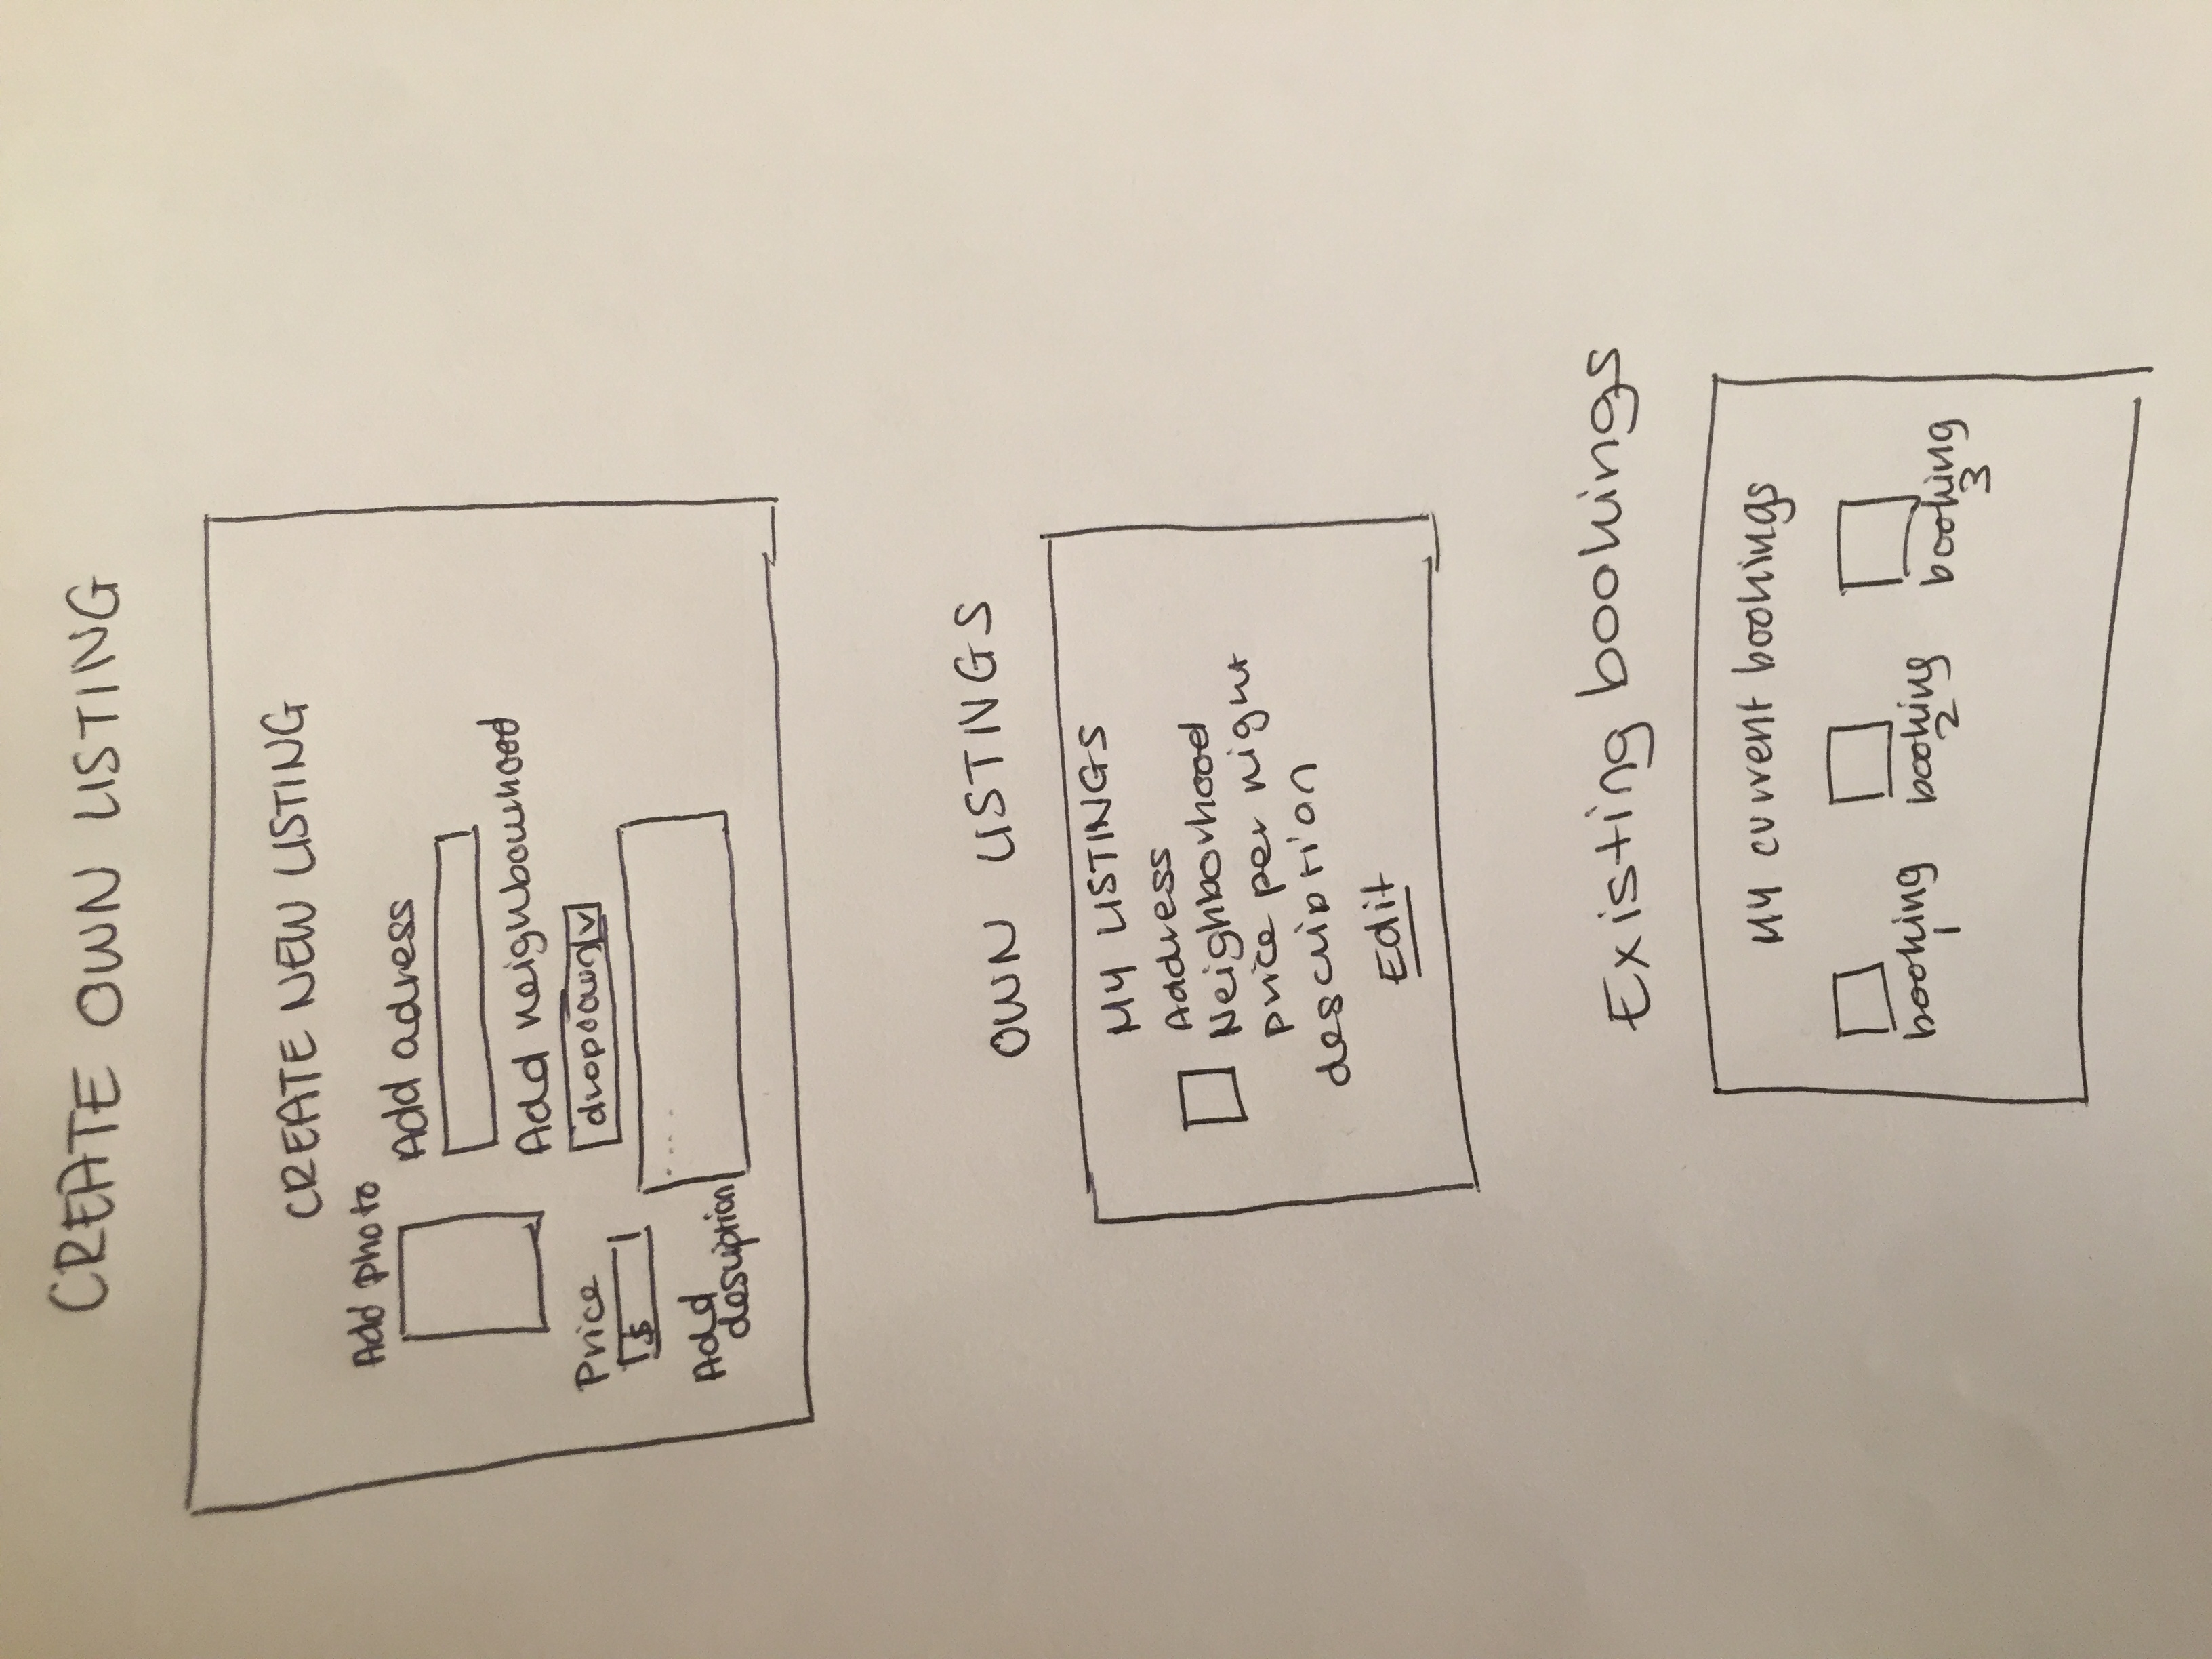 CREATE OWN LISTING
CREATE NEW LISTING
Add photo
Add adress
Add neighbourhood
dropdown v
Price
$
Add
desciption
....
OWN LISTNGS
MY LISTINGS
Address
Neighborhood
price per night
description
Edit
Existing bookings
My current bookings
booking
1
booking
2
booking
3